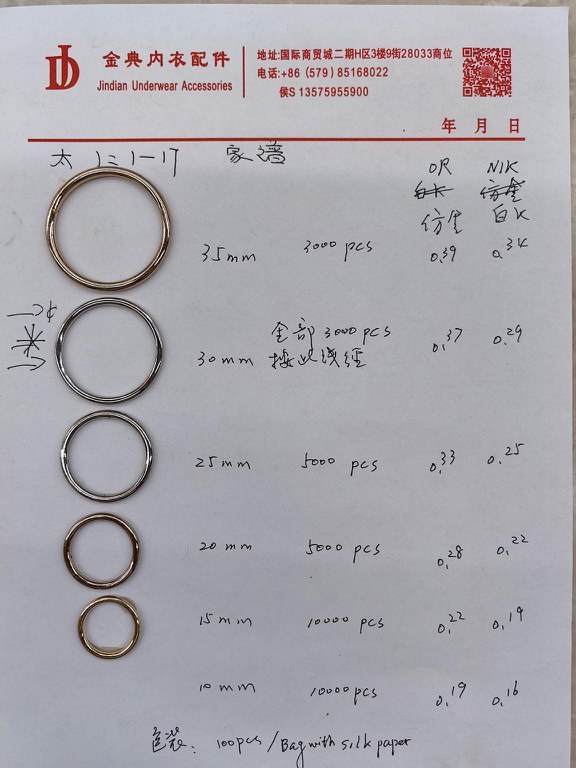 JD
金典内衣配件
Jindian Underwear Accessories
地址:国际商贸城二期H区3楼9街28033商位
电话:+86 (579) 85168022
侯S 13575955900
年 月 日
OR NIK
仿生 白K
35mm 3000 pcs 0.39 0.34
全部 3000 pcs
30mm 按此线经 0.37 0.29
25mm 5000 pcs 0.33 0.25
20mm 5000 pcs 0.28 0.22
15mm 10000 pcs 0.22 0.19
10mm 10000 pcs 0.19 0.16
包装: 100pcs/Bag with silk paper